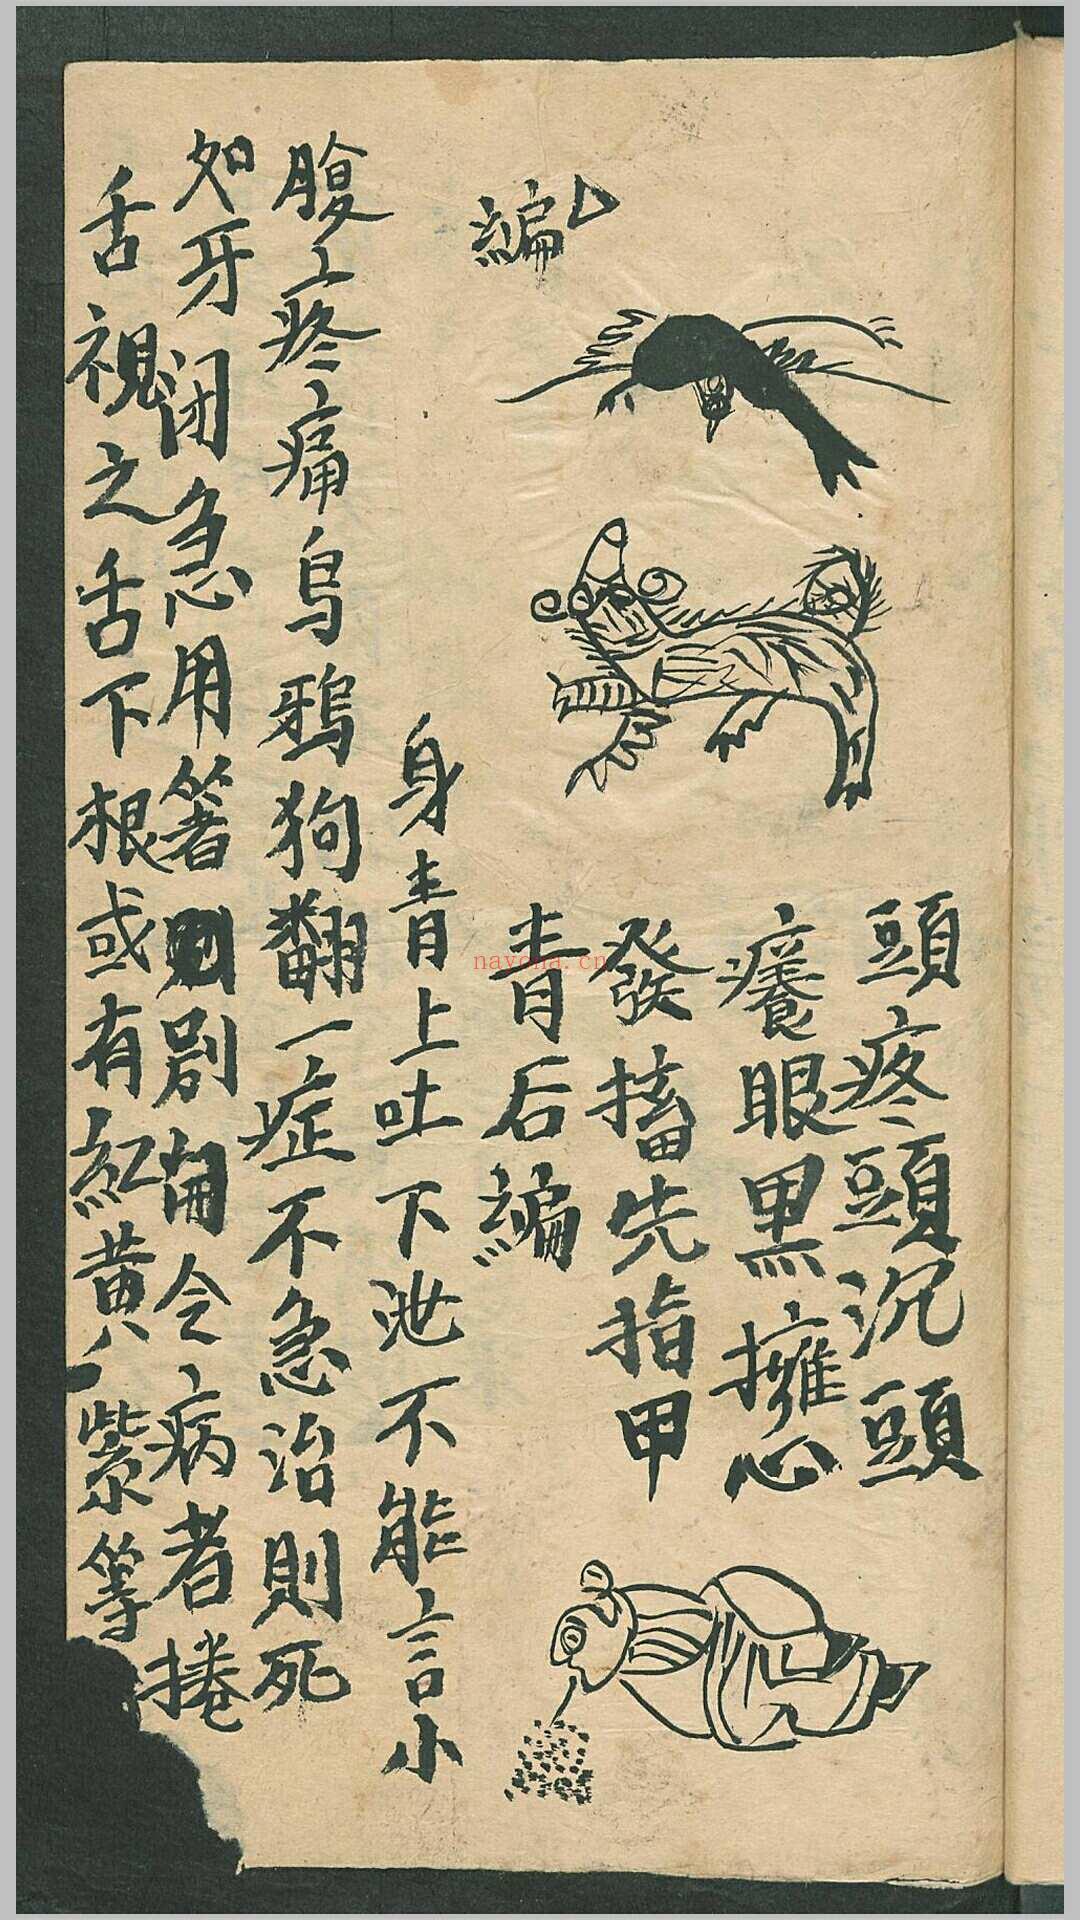 頭疼頭沉頭
癢眼黒擁心
發搐先指甲
青后編
編
身青上吐下泄不能言小
腹上疼痛烏鴉狗翻一症不急治則死
如牙闭急用箸別開令病者捲
舌視之舌下根或有紅黄紫等
nayona.cn